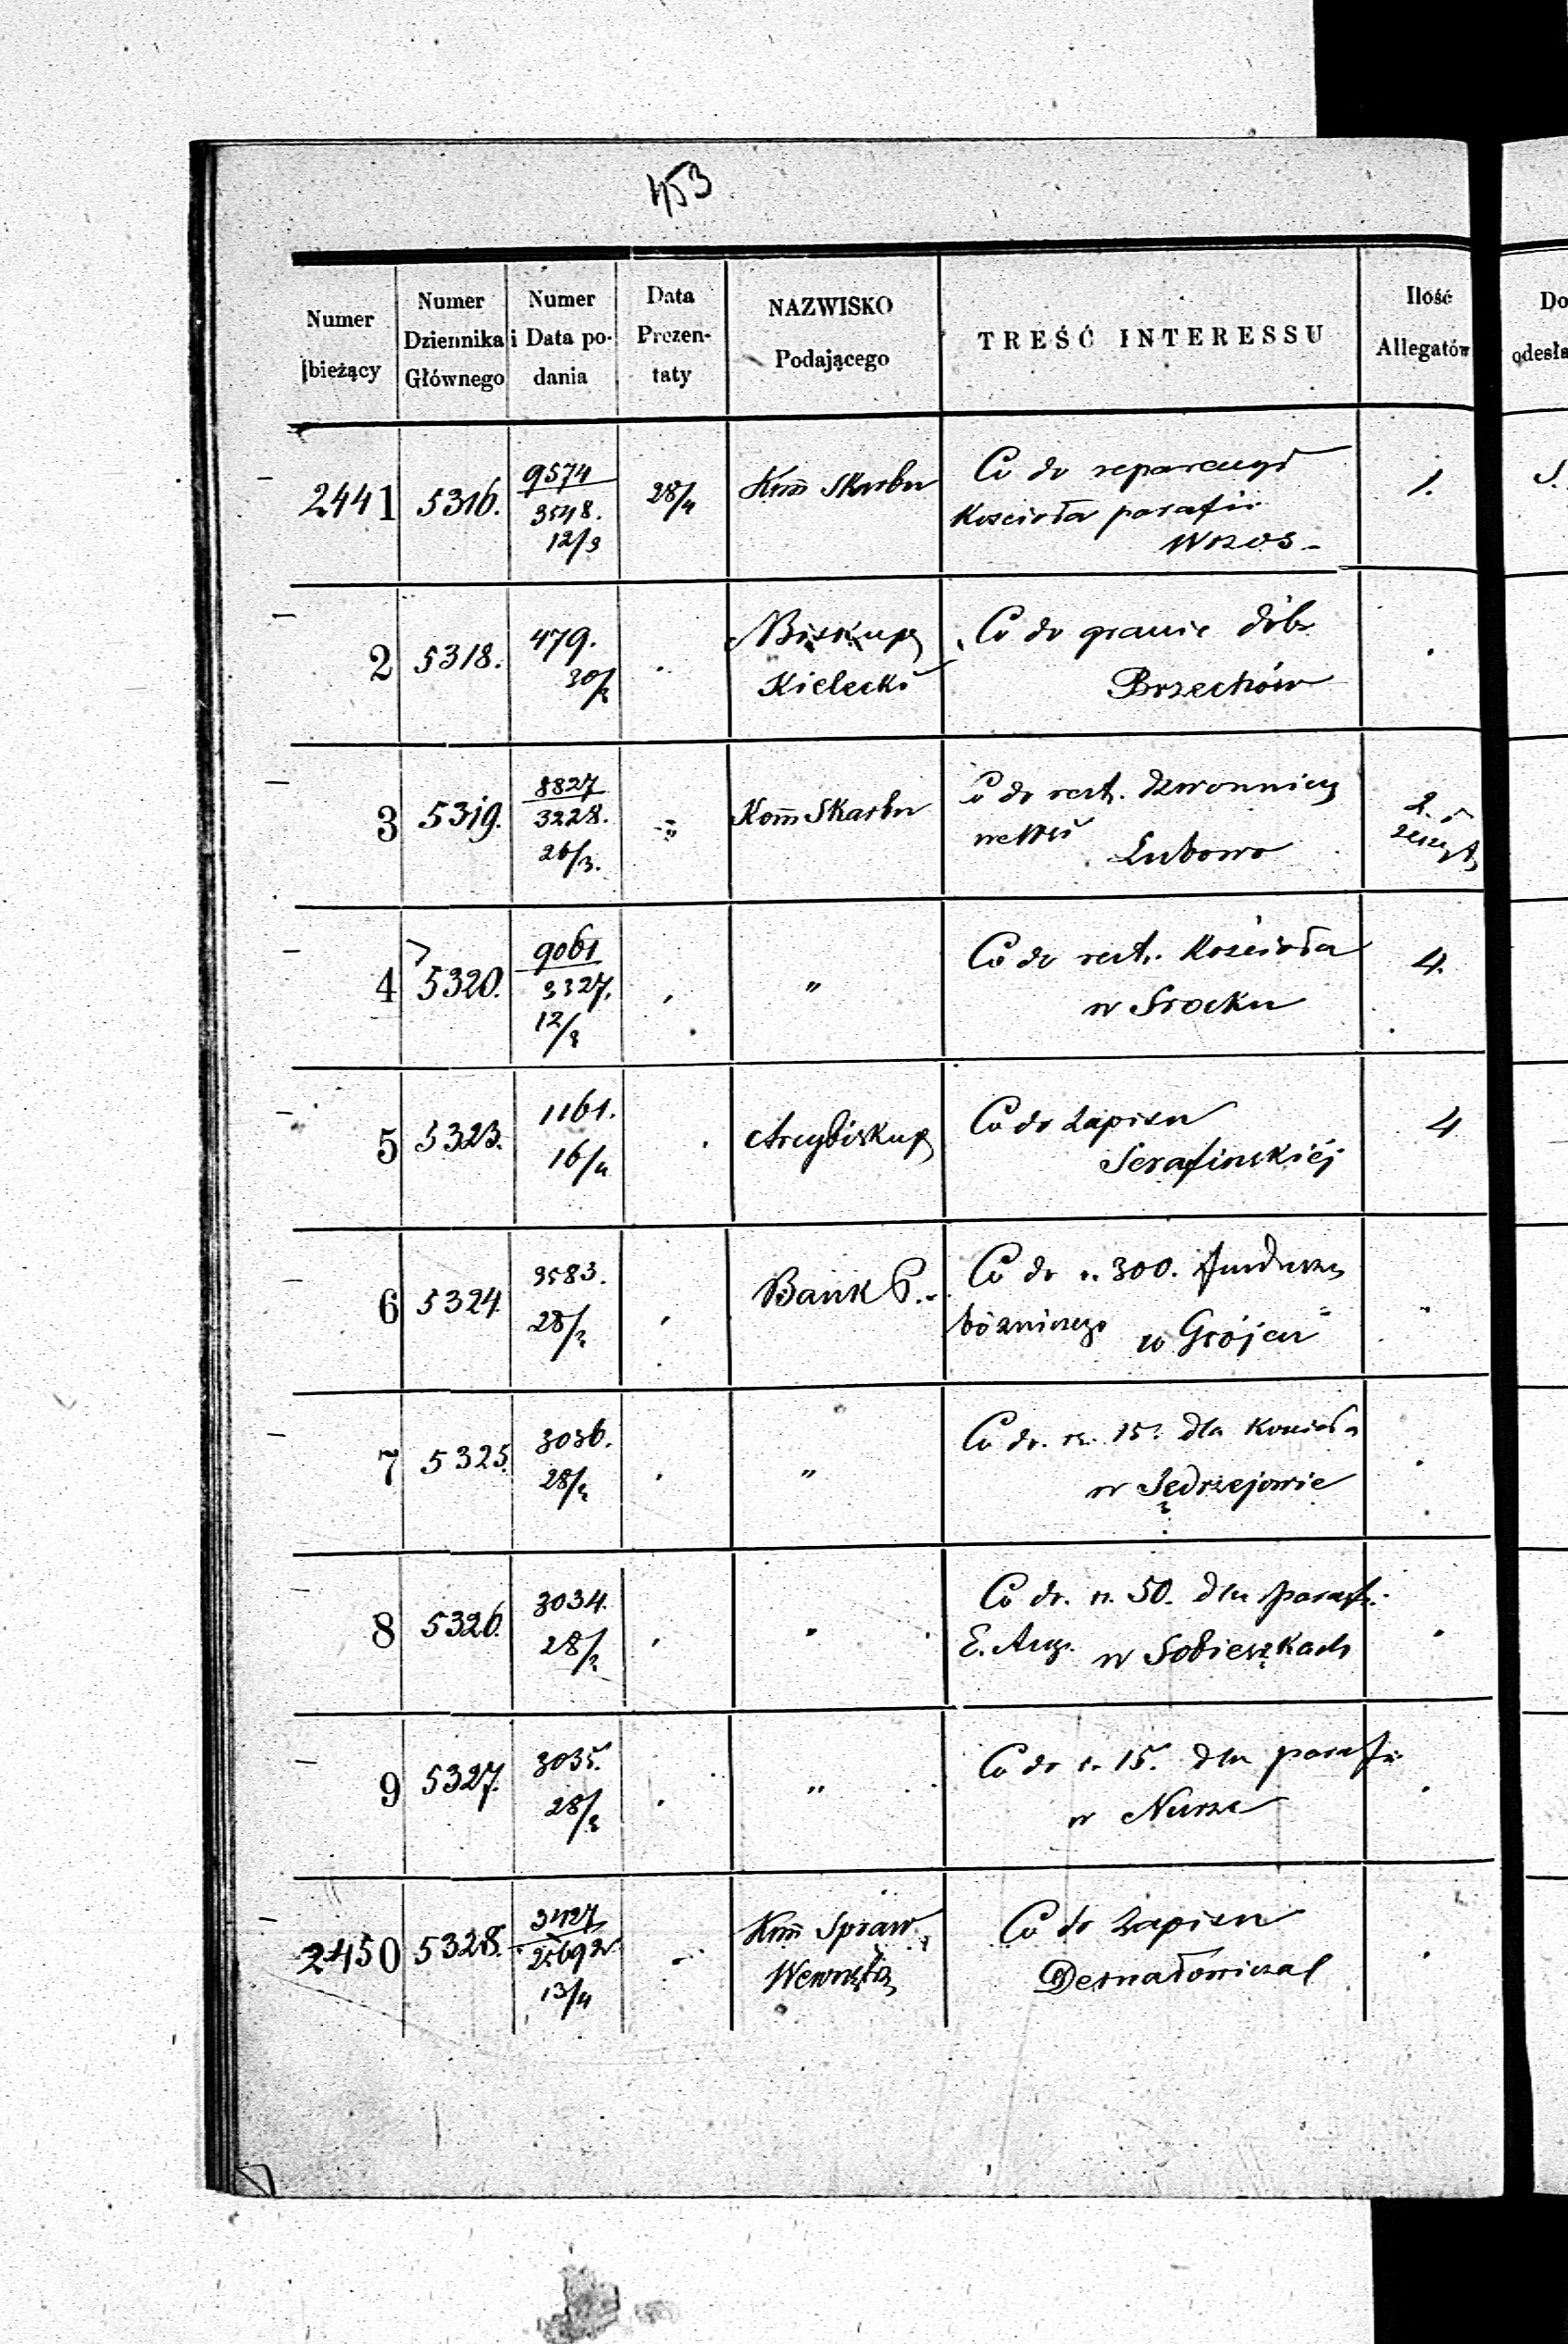 453
Numer bieżący
Numer Dziennika Głównego
Numer i Data podania
Data Prezentaty
NAZWISKO Podającego
TREŚĆ INTERESSU
Ilość Allegatów
Do
odesła
2441 5316. 9574 28/4 Kom Skarbu Co do reparacyi 1.
3548. Kościoła parafii
12/3 Wrzos
2 5318. 479. Biskup Co do granic dóbr
30/3 Kielecki Brzechów
3 5319. 8827 " Kom Skarbu Co do rest. dzwonnicy 2.
3228. we Wsi
26/3. Lubowo
4 5320. 9061 " Co do rest. Kościoła 4.
3327. w Srocku
12/3
5 5323. 1161. Arcybiskup Co do zapisu 4
16/4 Serafinskiéj
6 5324 3583. Bank P. Co do r. 300. funduszu
28/3 bóżniczego w Grójcu
7 5325. 3036. " Co do rs. 15. dla Kościoła
28/3 w Jędrzejowie
8 5326. 3034. Co do r. 50. dla paraf.
28/3 E. Aug. w Sobieskach
9 5327. 3035. " Co do r. 15. dla parafii
28/3 w Nurze
2450 5328. 3427 Kom Spraw Co do zapisu
13/4 Wewnętrz Dernałowicza